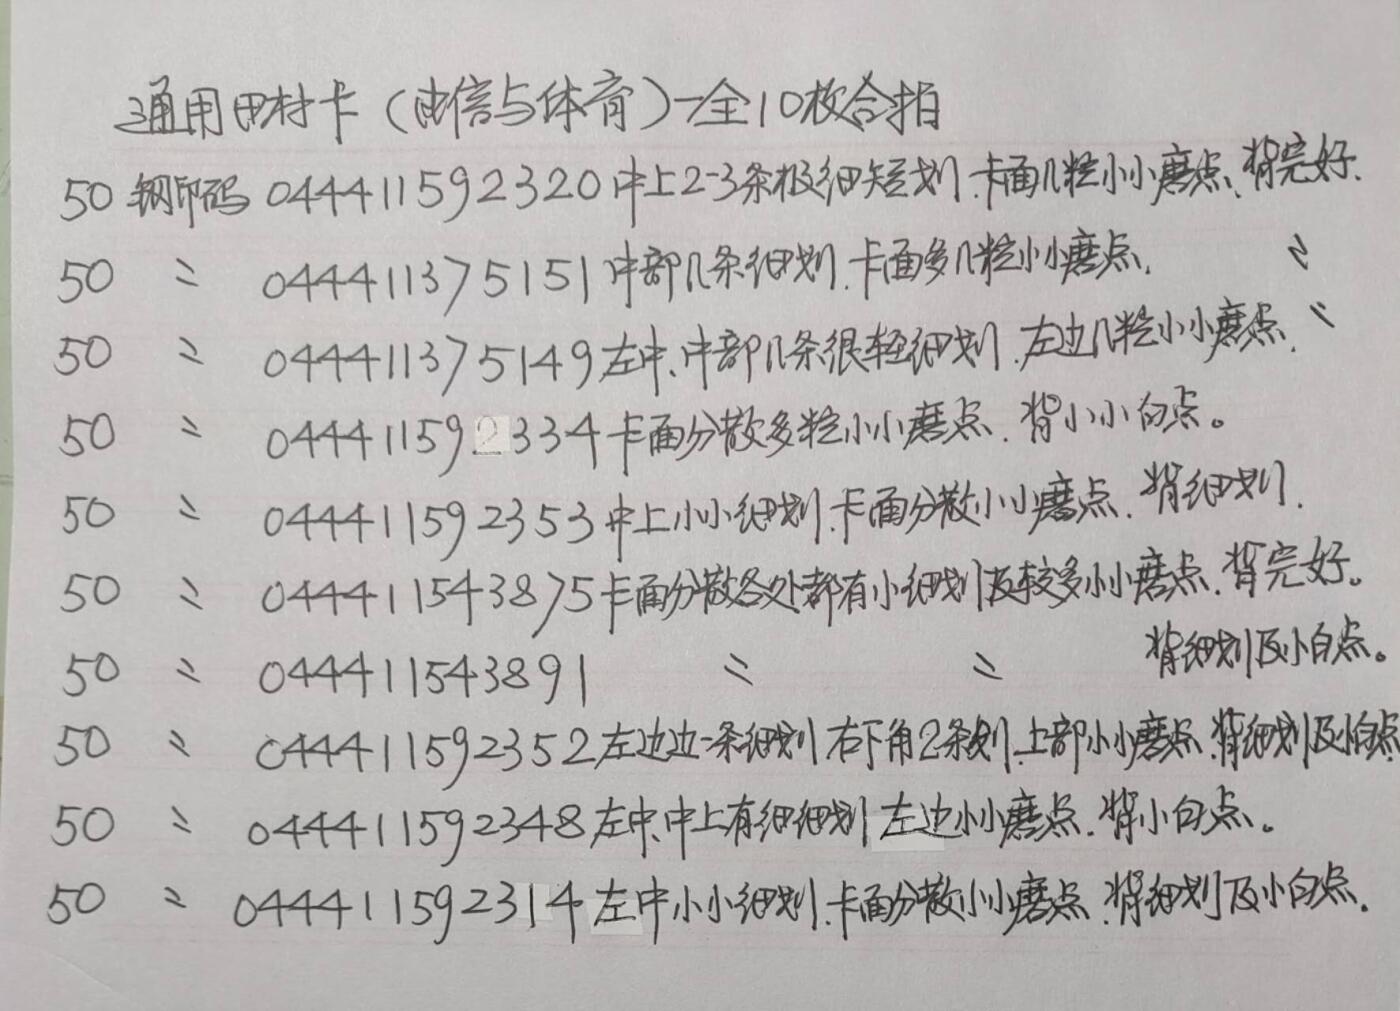 通用田村卡(电信与体育)-全10枚合拍
50 钢印码 044411592320中上2-3条极细短划.卡面几粒小小磨点、背完好.
50 〃 044411375151中部几条细划.卡面多几粒小小磨点. 〃
50 〃 044411375149左中、中部几条很轻细划.左边几粒小小磨点. 〃
50 〃 044411592334卡面分散多粒小小磨点.背小小白点。
50 〃 044411592353中上小小细划.卡面分散小小磨点.背细划.
50 〃 044411543875卡面分散各处都有小细划及较多小小磨点.背完好。
50 〃 044411543891 〃 〃 背细划及小白点。
50 〃 044411592352左边边一条细划.右下角2条划.上部小小磨点.背细划及小白点
50 〃 044411592348左中、中上有细细划.左边小小磨点.背小白点。
50 〃 044411592314左中小小细划.卡面分散小小磨点.背细划及小白点.